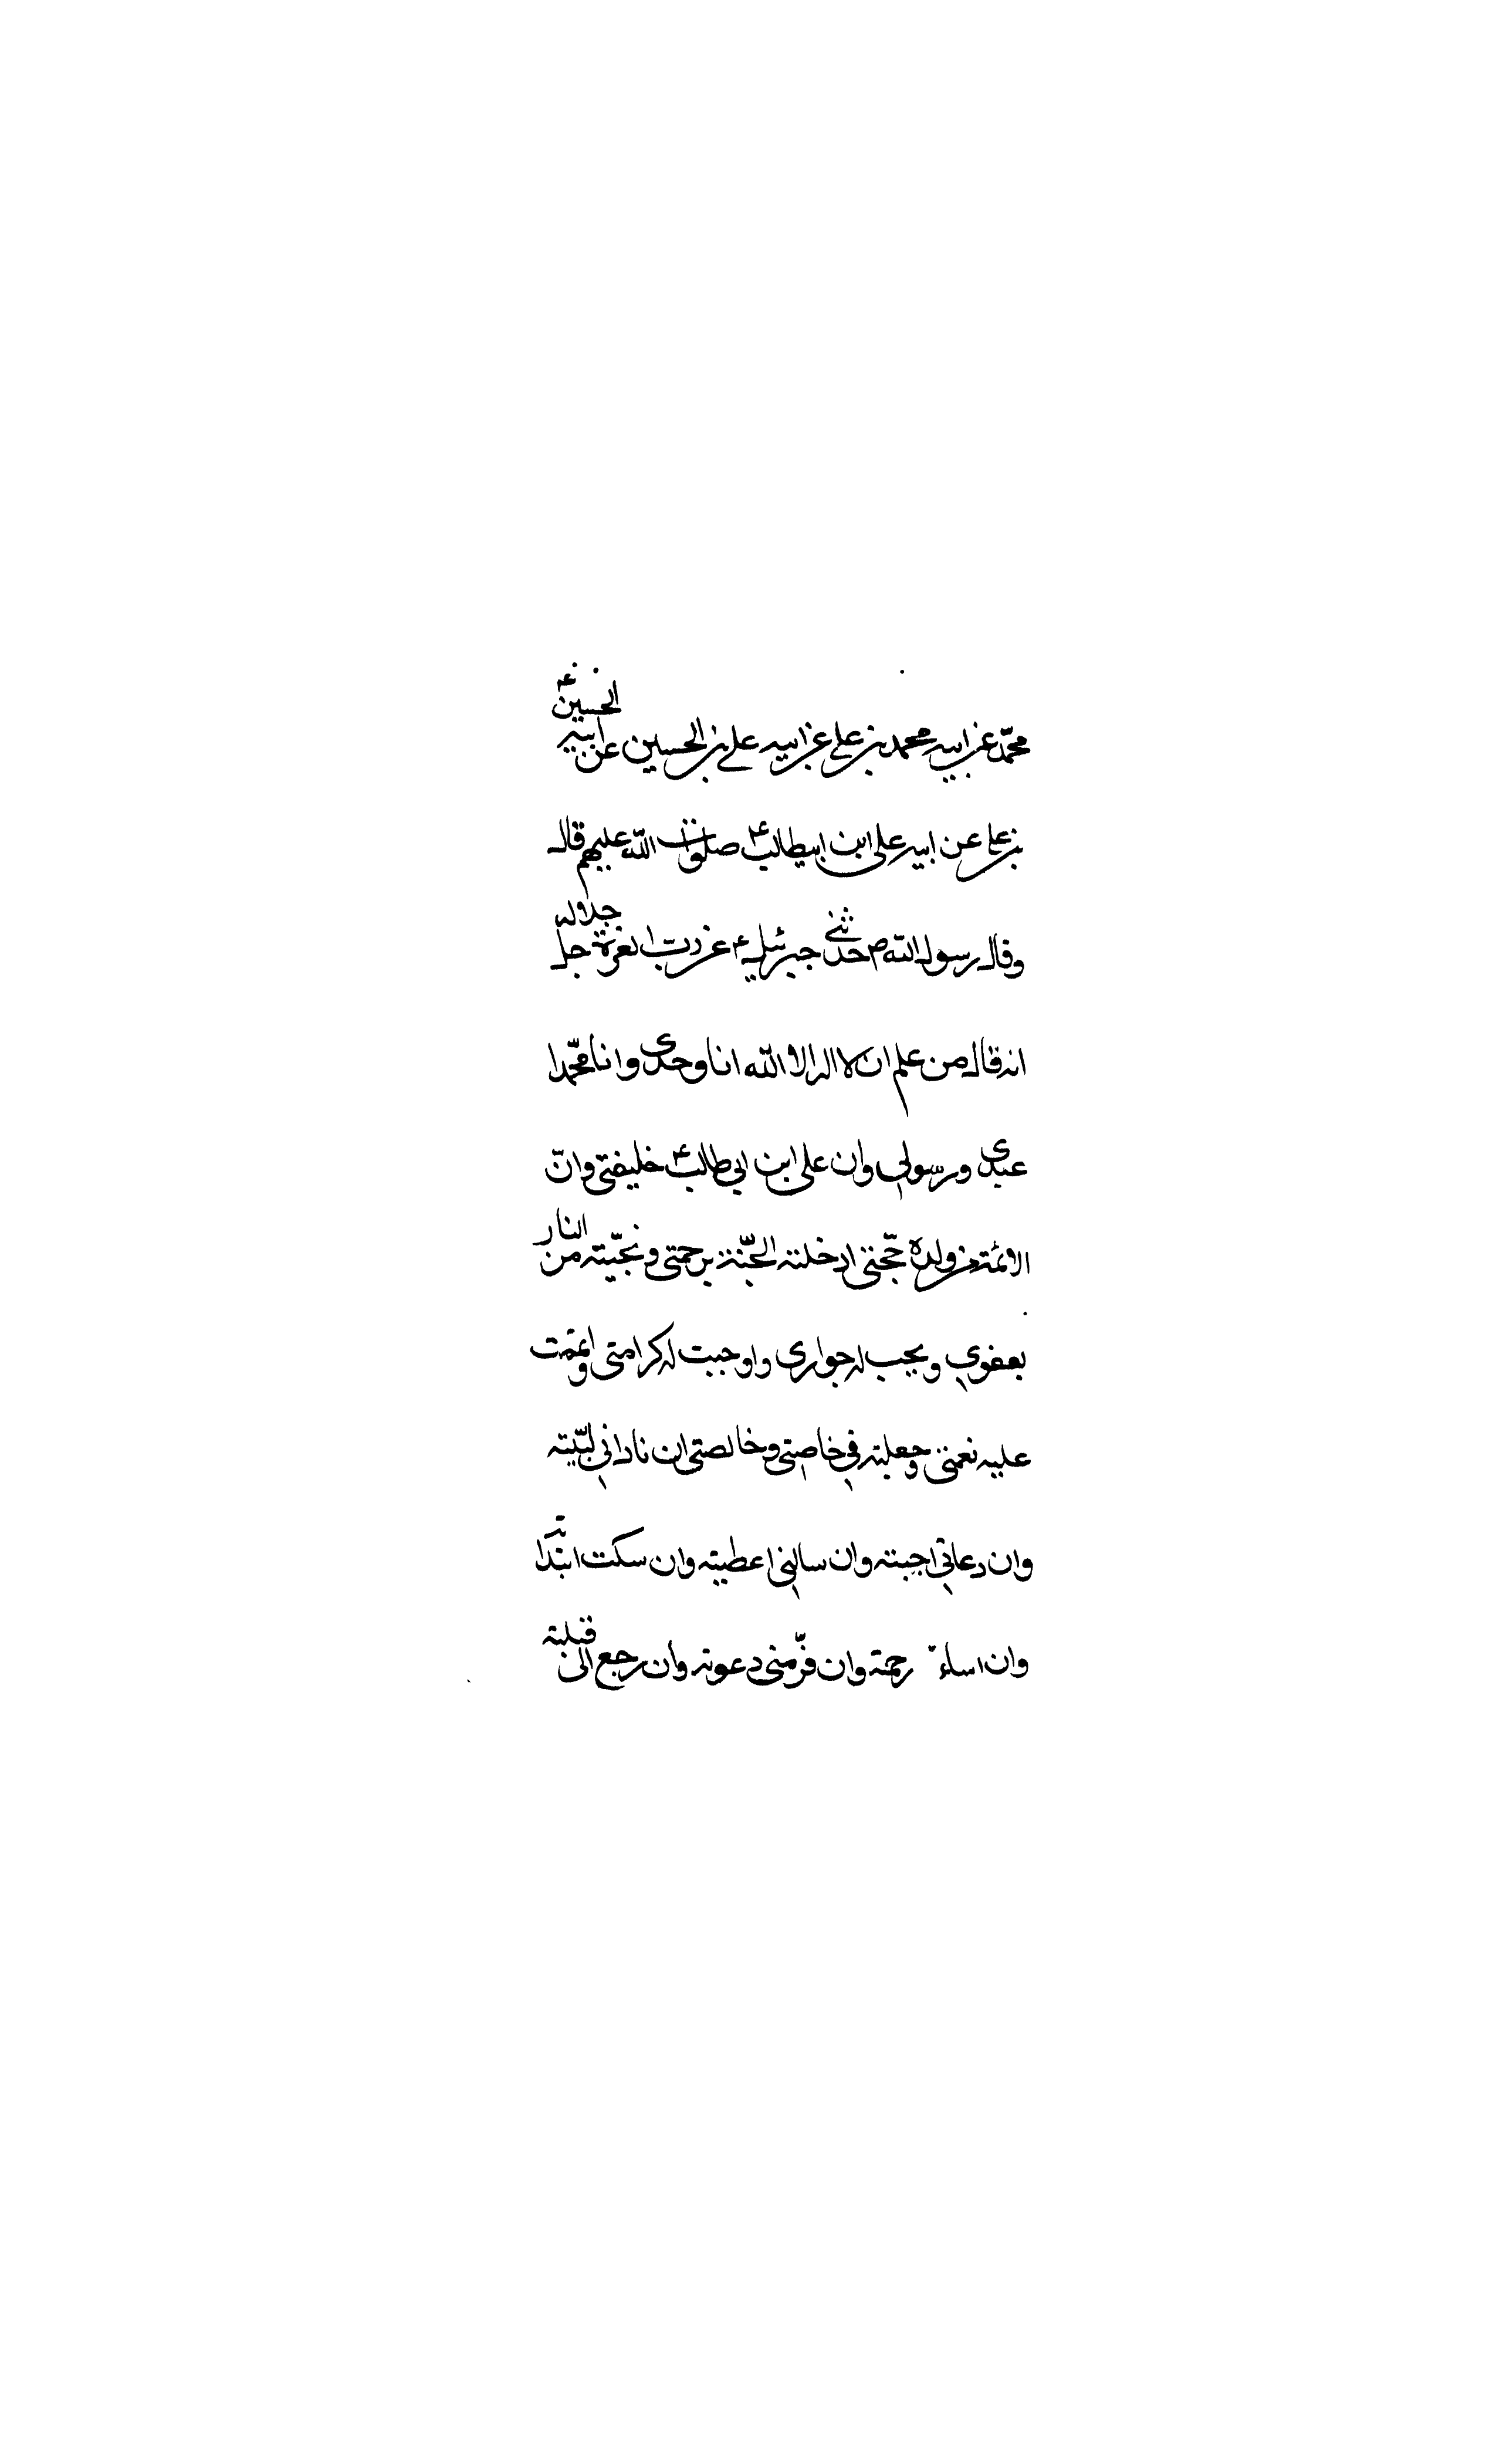 محمّد عن ابيه محمد بن علي عن ابيه علي بن الحسين عن ابيه الحسين ع
بن علي عن ابيه علي ابن ابيطالب ع صلوات الله عليهم قال
وقال رسول الله ص حدثني جبرئيل ع عن رب العزة جل جلاله
انه قال من علم ان لا اله الا الله انا وحدي وانا محمّدا
عبدي ورسولي وان علي ابن ابي طالب ع خليفتي وانّ
الائمة من ولده حججي ادخلته الجنّة برحمتي ونجّيته من النار
بعفوي ويجب له جواري واوجبت له كرامتي واتممت
عليه نعمتي وجعلته في خاصتي وخالصتي ان ناداني لبّيته
وان دعاني اجبته وان سالني اعطيته وان سكت ابتدا
وان اساء رحمته وان فرّ مني دعوته وان رجع الي قبلته